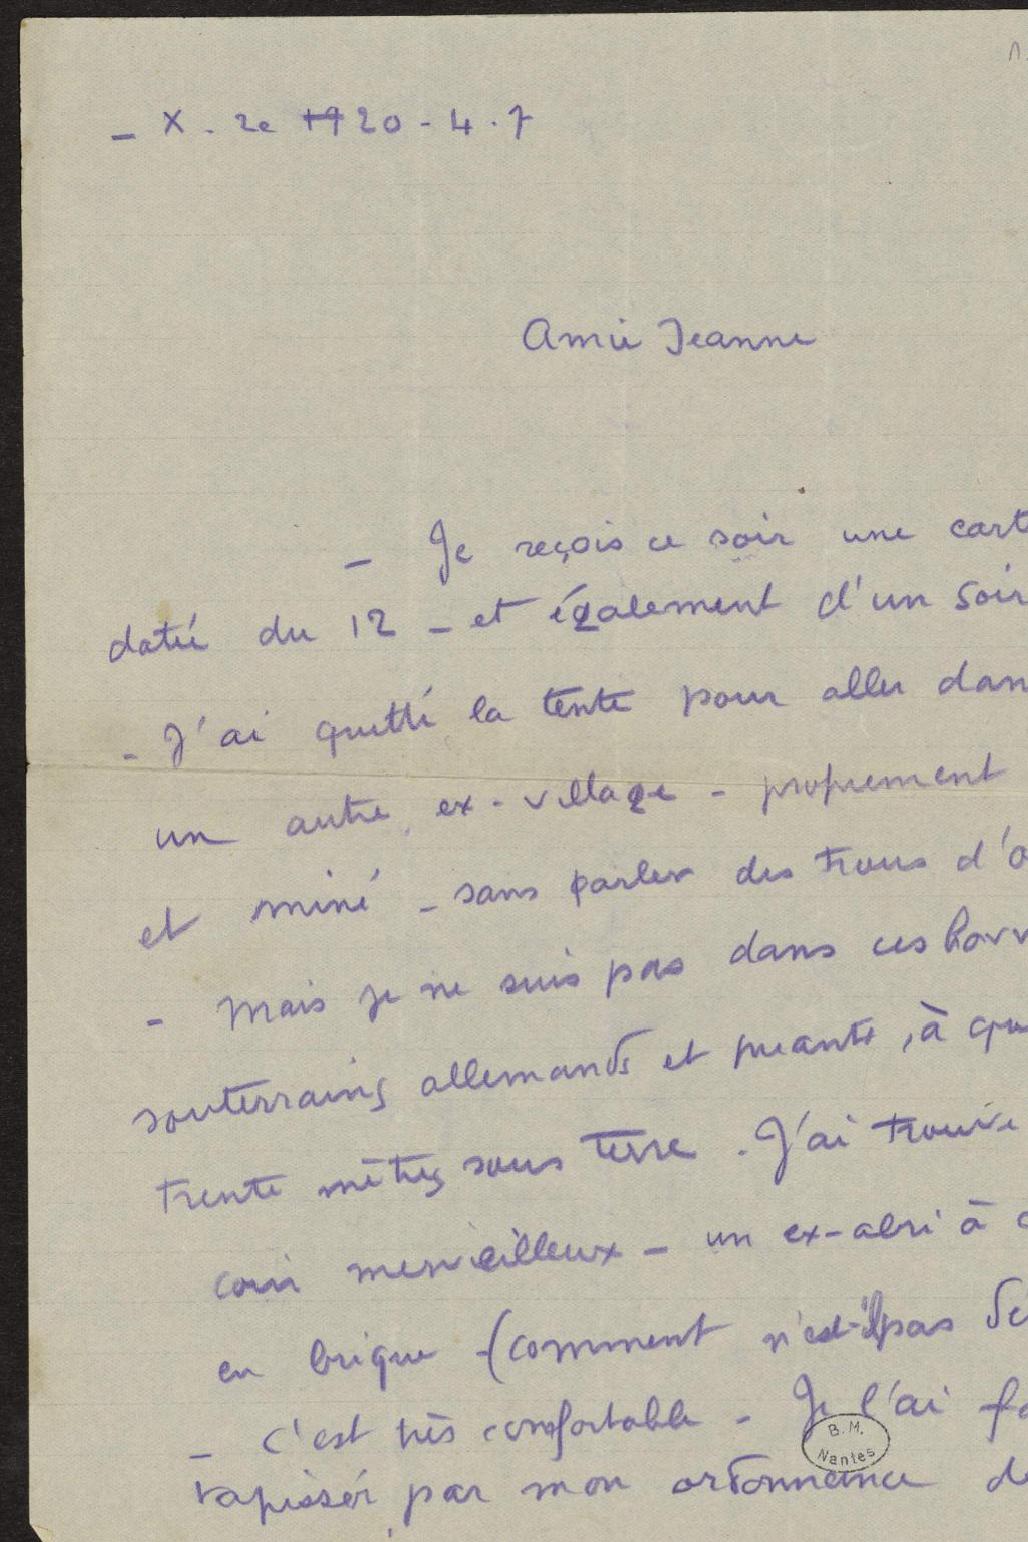 - X. 2e 1920 - 4. 7
Amie Jeanne
- Je reçois ce soir une cart
datée du 12 - et également d'un soir
- J'ai quitté la tente pour aller dan
un autre, ex-village - proprement
et miné - sans parler des trous d'o
- Mais je ne suis pas dans ces horr
souterrains allemands et puants, à qu
trente mètres sous terre. J'ai trouvé
coin merveilleux - un ex-abri à c
en brique - (comment n'est-il pas de
- C'est très confortable - Je l'ai fa
tapisser par mon ordonnance de
B. M.
Nantes